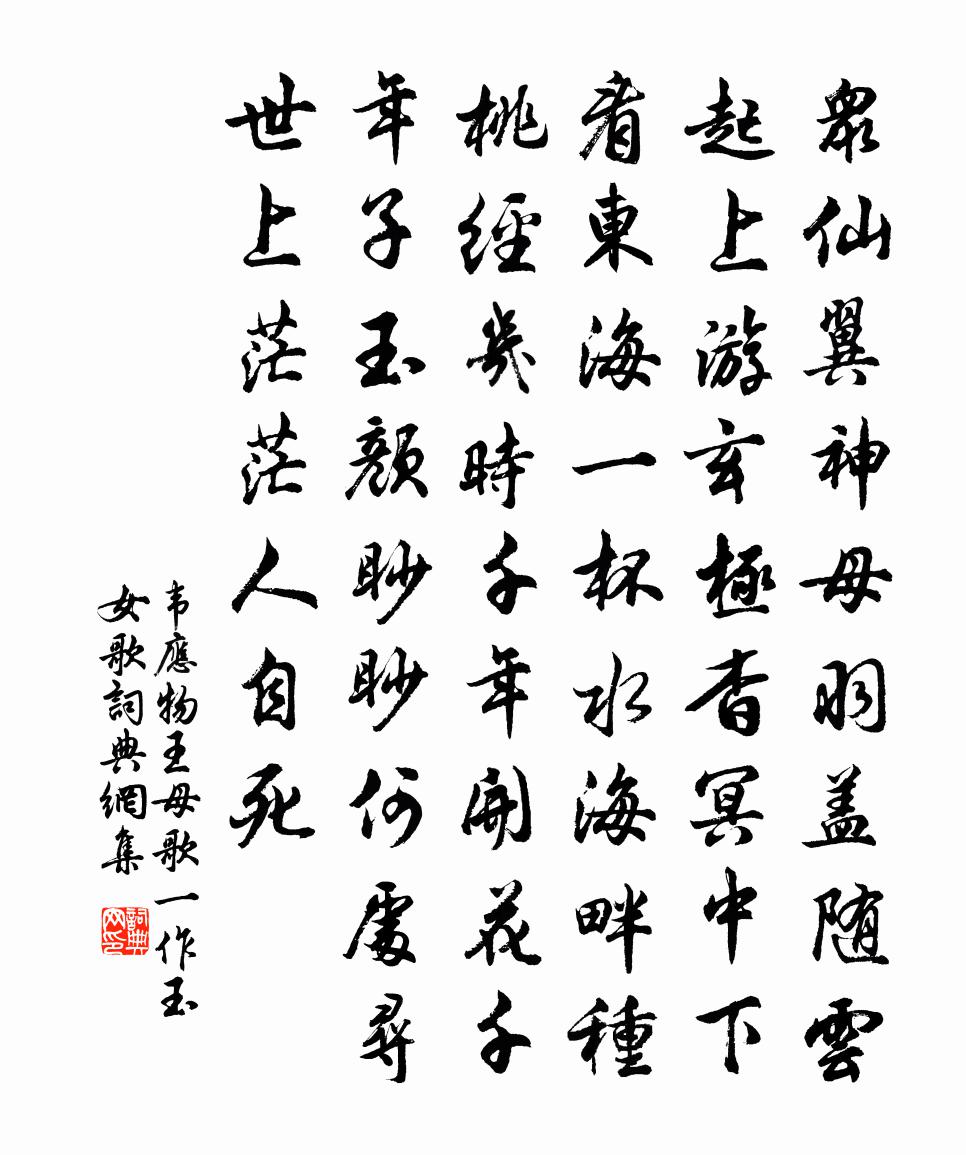 眾仙翼神母羽盖随雲
起上游玄極杳冥中下
看東海一杯水海畔種
桃經幾時千年開花千
年子玉顏眇眇何處尋
世上茫茫人自死
韦應物王母歌一作玉
女歌詞典網集
詞典网印